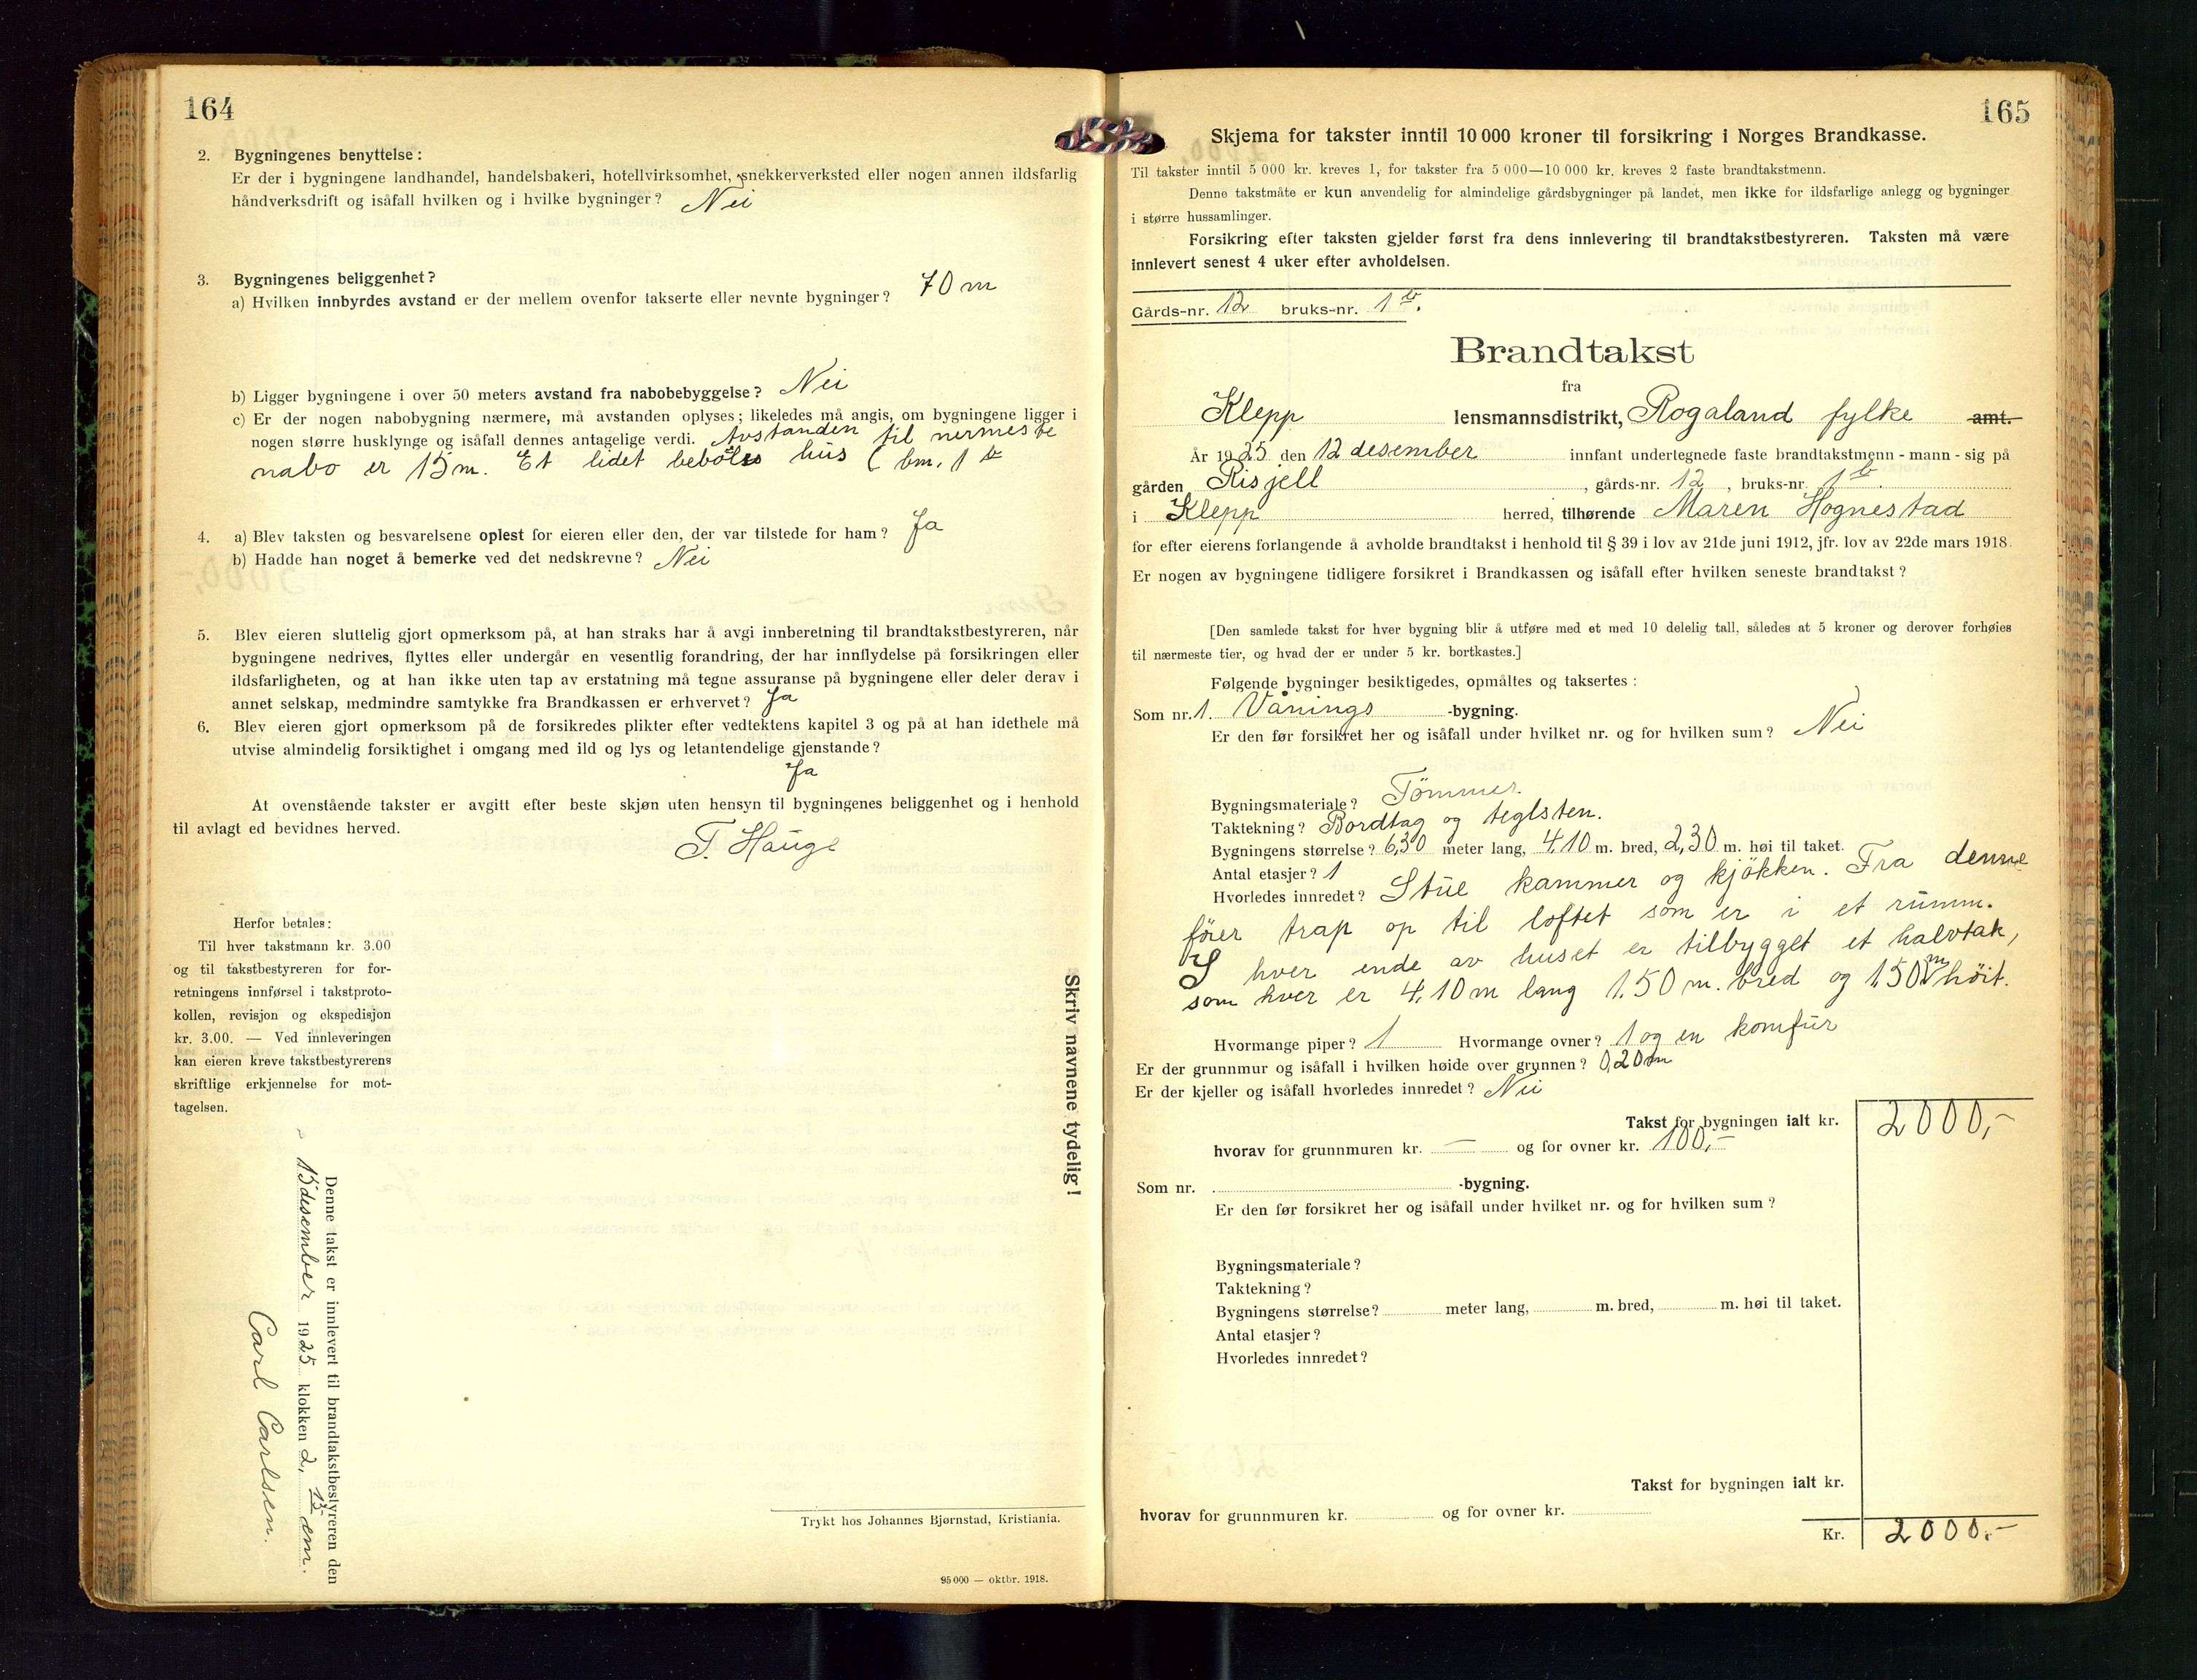 164
2. Bygningenes benyttelse:
Er der i bygningene landhandel, handelsbakeri, hotellvirksomhet, snekkerverksted eller nogen annen ildsfarlig
håndverksdrift og isåfall hvilken og i hvilke bygninger? Nei
3. Bygningenes beliggenhet?
a) Hvilken innbyrdes avstand er der mellem ovenfor takserte eller nevnte bygninger? 70 m
b) Ligger bygningene i over 50 meters avstand fra nabobebyggelse? Nei
c) Er der nogen nabobygning nærmere, må avstanden oplyses; likeledes må angis, om bygningene ligger i
nogen større husklynge og isåfall dennes antagelige verdi. Avstanden til nermeste
nabo er 15 m. Et lidet hus ( bm. 1
4. a) Blev taksten og besvarelsene oplest for eieren eller den, der var tilstede for ham? Ja
b) Hadde han noget å bemerke ved det nedskrevne? Nei
5. Blev eieren sluttelig gjort opmerksom på, at han straks har å avgi innberetning til brandtakstbestyreren, når
bygningene nedrives, flyttes eller undergår en vesentlig forandring, der har innflydelse på forsikringen eller
ildsfarligheten, og at han ikke uten tap av erstatning må tegne assuranse på bygningene eller deler derav i
annet selskap, medmindre samtykke fra Brandkassen er erhvervet? Ja
6. Blev eieren gjort opmerksom på de forsikredes plikter efter vedtektens kapitel 3 og på at han idethele må
utvise almindelig forsiktighet i omgang med ild og lys og letantendelige gjenstande?
Ja
At ovenstående takster er avgitt efter beste skjøn uten hensyn til bygningenes beliggenhet og i henhold
til avlagt ed bevidnes herved.
T. Hauge
Herfor betales:
Til hver takstmann kr. 3.00
og til takstbestyreren for for-
retningens innførsel i takstproto-
kollen, revisjon og ekspedisjon
kr. 3.00. — Ved innleveringen
kan eieren kreve takstbestyrerens
skriftlige erkjennelse for mot-
tagelsen.
Skriv navnene tydelig!
Denne takst er innlevert til brandtakstbestyreren den
15 desember 1925 klokken 2,15 em.
Carl Carlsen.
Trykt hos Johannes Bjørnstad, Kristiania.
95 000 — oktbr. 1918.
165
Skjema for takster inntil 10 000 kroner til forsikring i Norges Brandkasse.
Til takster inntil 5 000 kr. kreves 1, for takster fra 5 000—10 000 kr. kreves 2 faste brandtakstmenn.
Denne takstmåte er kun anvendelig for almindelige gårdsbygninger på landet, men ikke for ildsfarlige anlegg og bygninger
i større hussamlinger.
Forsikring efter taksten gjelder først fra dens innlevering til brandtakstbestyreren. Taksten må være
innlevert senest 4 uker efter avholdelsen.
Gårds-nr. 12 bruks-nr. 1 b.
Brandtakst
fra
Klepp lensmannsdistrikt, Rogaland fylke amt.
År 1925 den 12 desember innfant undertegnede faste brandtakstmenn - mann - sig på
gården Risjell, gårds-nr. 12, bruks-nr. 1 b
i Klepp herred, tilhørende Maren Hognestad
for efter eierens forlangende å avholde brandtakst i henhold til § 39 i lov av 21de juni 1912, jfr. lov av 22de mars 1918.
Er nogen av bygningene tidligere forsikret i Brandkassen og isåfall efter hvilken seneste brandtakst?
[Den samlede takst for hver bygning blir å utføre med et med 10 delelig tall, således at 5 kroner og derover forhøies
til nærmeste tier, og hvad der er under 5 kr. bortkastes.]
Følgende bygninger besiktigedes, opmåltes og taksertes:
Som nr. 1. Vånings -bygning.
Er den før forsikret her og isåfall under hvilket nr. og for hvilken sum? Nei
Bygningsmateriale? Tömmer.
Taktekning? Bordtag og teglsten.
Bygningens størrelse? 6,30 meter lang, 4,10 m. bred, 2,30 m. høi til taket.
Antal etasjer? 1
Hvorledes innredet? Stue kammer og kjökken. Fra denne
förer trap op til loftet som er i et rumm.
I hver ende av huset er tilbygget et halvtak,
som hver er 4,10 m lang 1,50 m. bred og 1,50 m höit.
Hvormange piper? 1 Hvormange ovner? 1 og en komfur
Er der grunnmur og isåfall i hvilken høide over grunnen? 0,20 m
Er der kjeller og isåfall hvorledes innredet? Nei
Takst for bygningen ialt kr. 2000,-
hvorav for grunnmuren kr. — og for ovner kr. 100,-
Som nr. -bygning.
Er den før forsikret her og isåfall under hvilket nr. og for hvilken sum?
Bygningsmateriale?
Taktekning?
Bygningens størrelse? meter lang, m. bred, m. høi til taket.
Antal etasjer?
Hvorledes innredet?
Takst for bygningen ialt kr.
hvorav for grunnmuren kr. og for ovner kr.
Kr. 2000.-